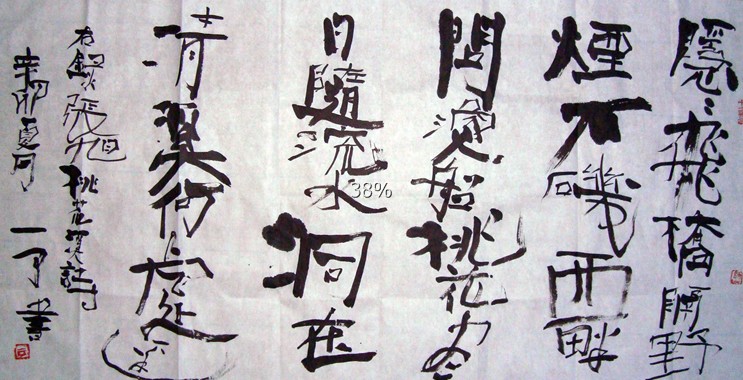 隱〻飛橋隔野
煙石磯西畔
問漁船桃花尽
日隨流水洞在
清溪何處邊
右錄張旭桃花溪詩
辛卯夏月 一了書
38%